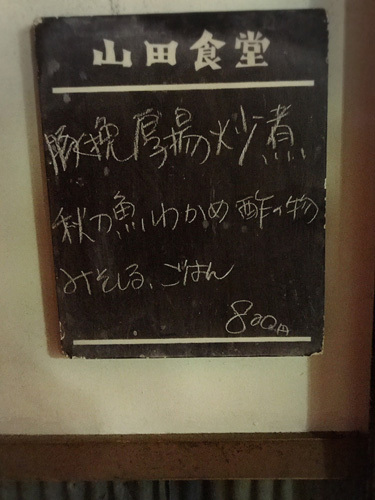 山田食堂
豚挽厚揚の炒煮
秋刀魚、わかめ酢の物
みそしる、ごはん
800円